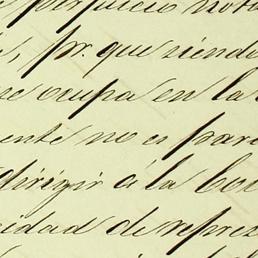 por juicio nota
, pr. que siendo
se ocupa en la
ente no es pare
dirigir á la Co
idad de repres